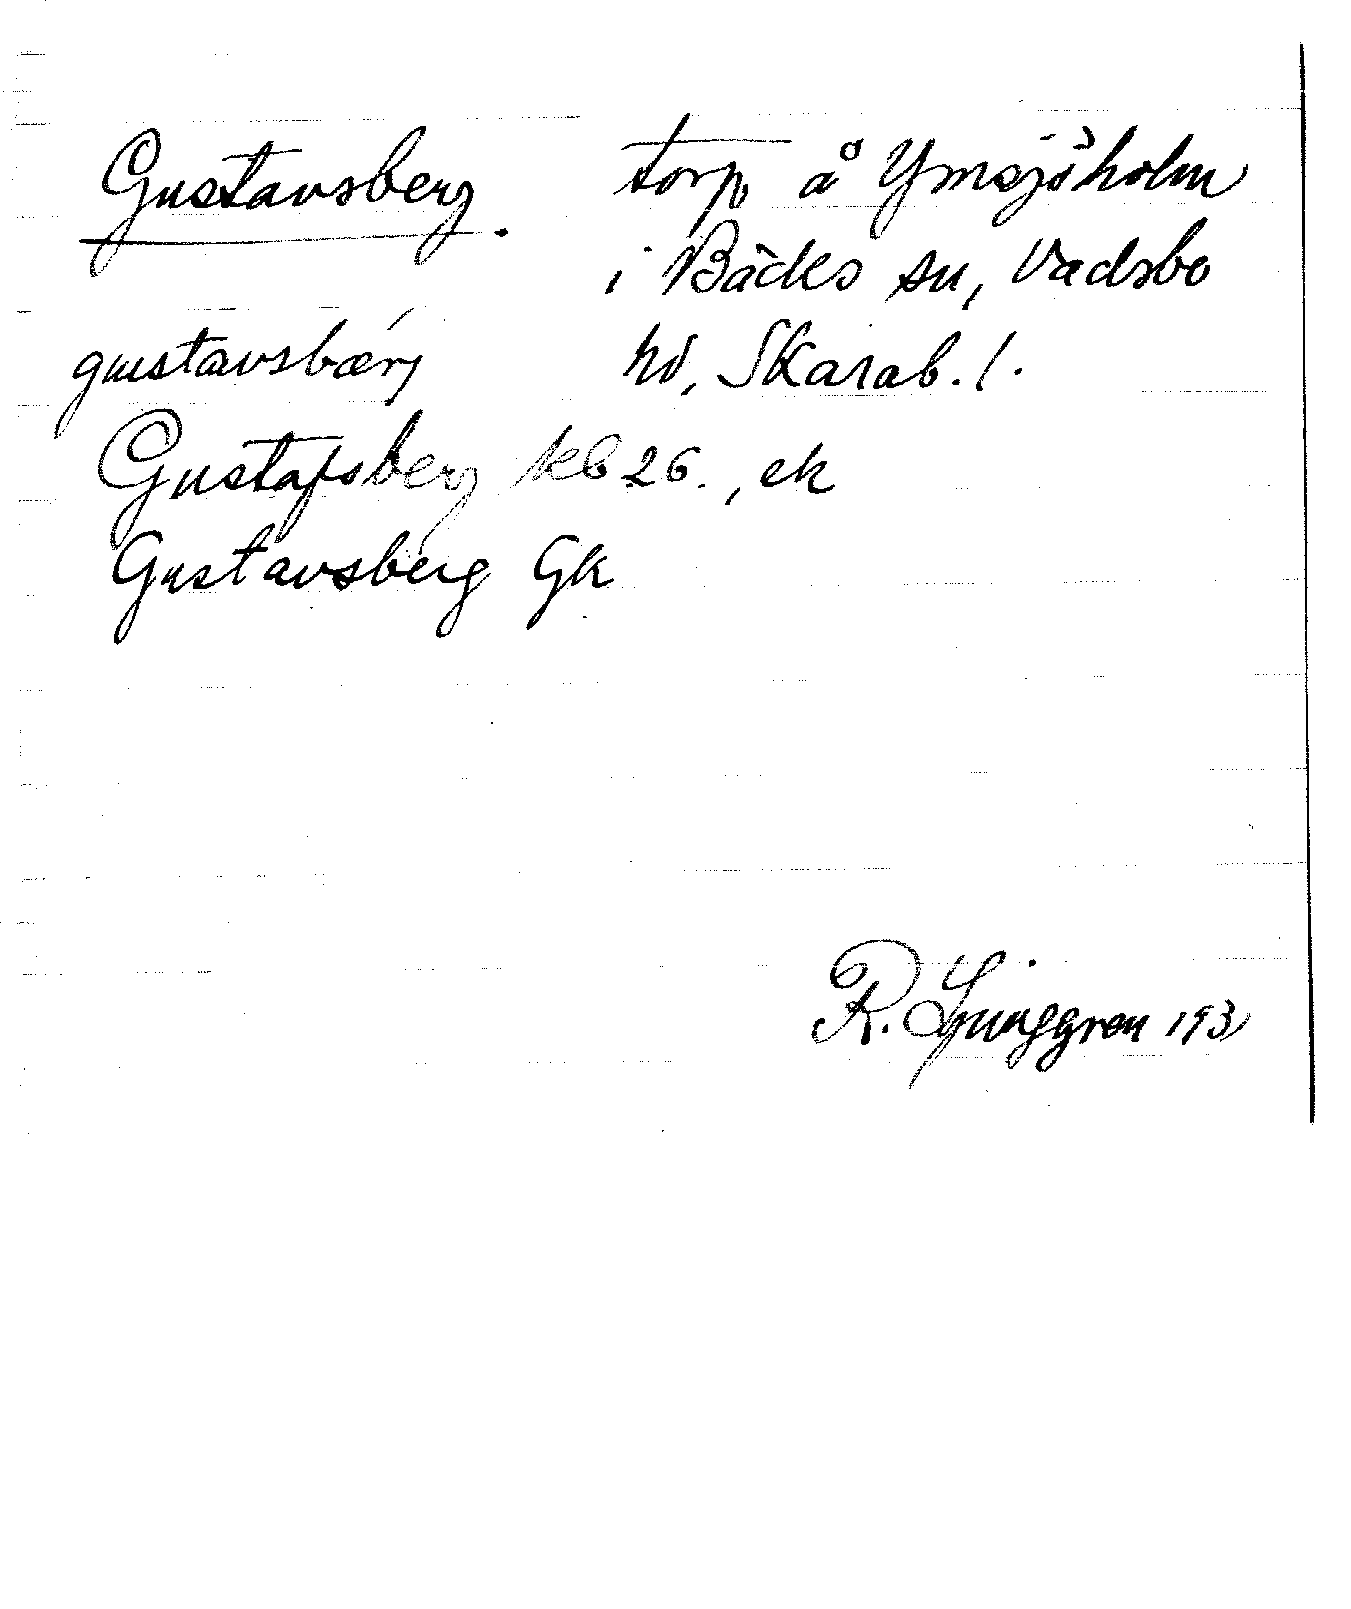 Gustavsberg. torp å Ymsjöholm
i Bäcks sn, Vadsbo
gustavsbærj hd, Skarab. l.
Gustafsberg kb 26., ek
Gustavsberg Gk
R. Ljunggren 193